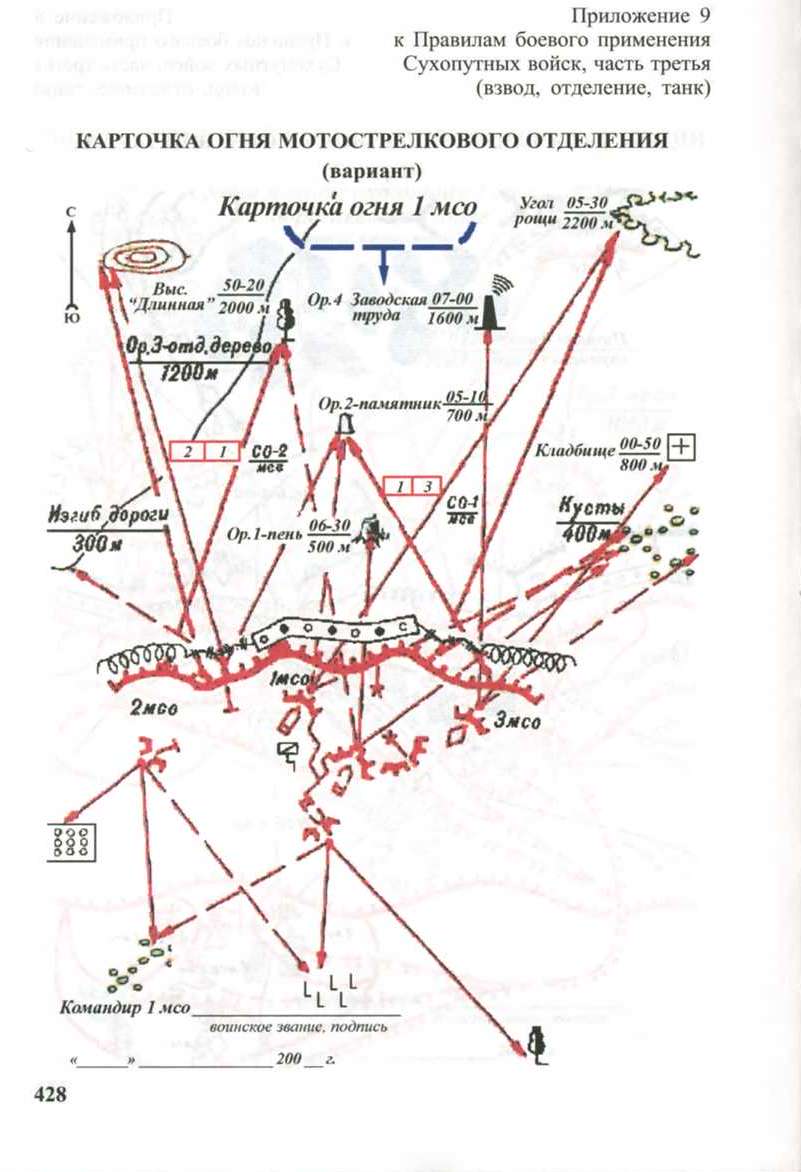 Приложение 9
к Правилам боевого применения
Сухопутных войск, часть третья
(взвод, отделение, танк)
КАРТОЧКА ОГНЯ МОТОСТРЕЛКОВОГО ОТДЕЛЕНИЯ
(вариант)
Карточка огня 1 мсо
С
Ю
Угол рощи 05-30
2200 м
Выс. "Длинная" 50-20
2000 м
Ор.4 Заводская труда 07-00
1600 м
Ор.3-отд.дерево
1200м
Ор.2-памятник 05-10
700 м
2 1
СО-2
мсв
Кладбище 00-50
800 м
1 3
СО-1
мсв
Изгиб дороги
300м
Ор.1-пень 06-30
500 м
Кусты
400м
С
2мсо
1мсо
3мсо
Командир 1 мсо
воинское звание, подпись
«______» ________________ 200 __г.
428